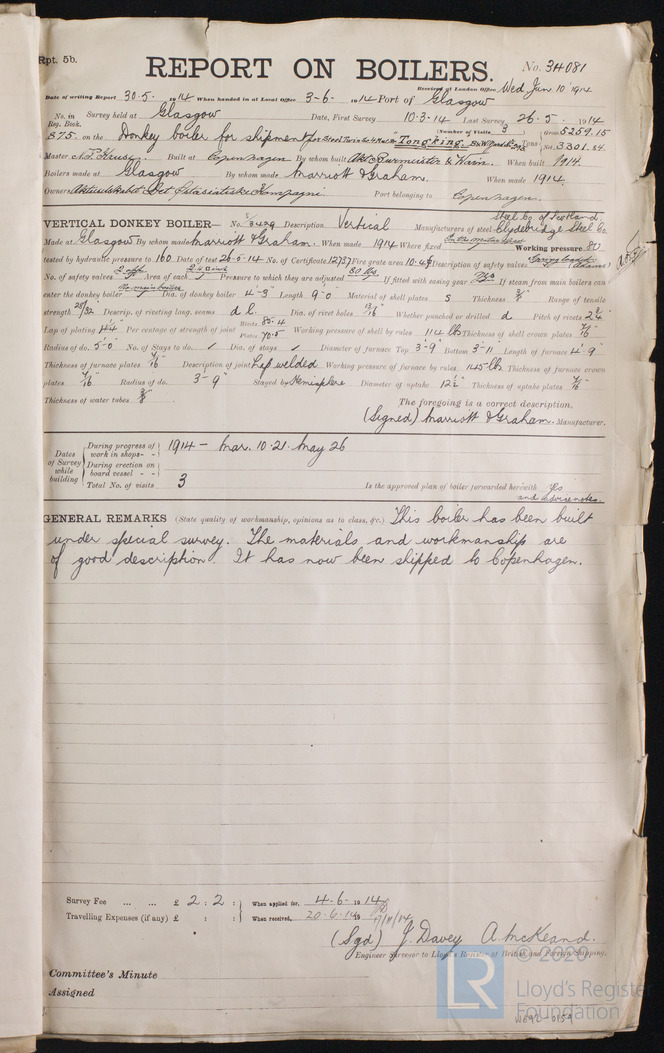 Rpt. 5b.
REPORT ON BOILERS.
No. 34081
Received at London Office Wed. Jun. 10 1914
Date of writing Report 30-5- 1914 When handed in at Local Office 3-6- 1914 Port of Glasgow
No. in Survey held at Glasgow Date, First Survey 10-3-14 Last Survey 26-5- 1914
Reg. Book.
(Number of Visits 3)
875 on the Donkey boiler for shipment for Steel Twin Sc "Tongking" Tons Gross 5259.15 Net 3301.54
Master Built at Copenhagen By whom built Akt. Burmeister & Wain When built 1914.
Boilers made at Glasgow By whom made Marriott & Graham. When made 1914.
Owners Aktieselskabet Det Østasiatiske Kompagni Port belonging to Copenhagen.
VERTICAL DONKEY BOILER— No. Description Vertical Manufacturers of steel Steel Co. of Scotland. Clydebridge Steel Co.
Made at Glasgow By whom made Marriott & Graham. When made 1914 Where fixed Working pressure 80
tested by hydraulic pressure to 160 Date of test 26-5-14 No. of Certificate 12737 Fire grate area 10.4 Description of safety valves (Adams)
No. of safety valves 2 Area of each Pressure to which they are adjusted 80 lbs If fitted with easing gear Yes If steam from main boilers can
enter the donkey boiler No main boilers Dia. of donkey boiler 4'-3" Length 9'-0" Material of shell plates S Thickness Range of tensile
strength 28/32 Descrip. of riveting long. seams d.l. Dia. of rivet holes 13/16" Whether punched or drilled d Pitch of rivets
Lap of plating Per centage of strength of joint Rivets 80.4 Plates 70.5 Working pressure of shell by rules 114 lb Thickness of shell crown plates 7/16
Radius of do. 5'-0" No. of Stays to do. / Dia. of stays / Diameter of furnace Top 3'-9" Bottom 3'-11" Length of furnace 4'-9"
Thickness of furnace plates 7/16" Description of joint Lap welded Working pressure of furnace by rules 145 lb Thickness of furnace crown
plates 7/16" Radius of do. 3'-9" Stayed by Hemisphere Diameter of uptake 12½" Thickness of uptake plates 7/16"
Thickness of water tubes 3/8"
The foregoing is a correct description,
(Signed) Marriott & Graham. Manufacturer.
Dates of Survey while building
During progress of work in shops - - 1914 - Mar. 10. 21. May 26
During erection on board vessel - -
Total No. of visits 3
Is the approved plan of boiler forwarded herewith Yes
and advice notes.
GENERAL REMARKS (State quality of workmanship, opinions as to class, &c.) This boiler has been built
under special survey. The materials and workmanship are
of good description. It has now been shipped to Copenhagen.
Survey Fee ... ... £ 2 : 2 : When applied for, 4-6- 1914
Travelling Expenses (if any) £ : : When received, 20-6-14 17/11/14
(Sgd) J. Davey A. McKeand.
Engineer Surveyor to Lloyd's Register of British and Foreign Shipping.
Committee's Minute
Assigned
© 2020
LR
Lloyd's Register
Foundation
W692-0159